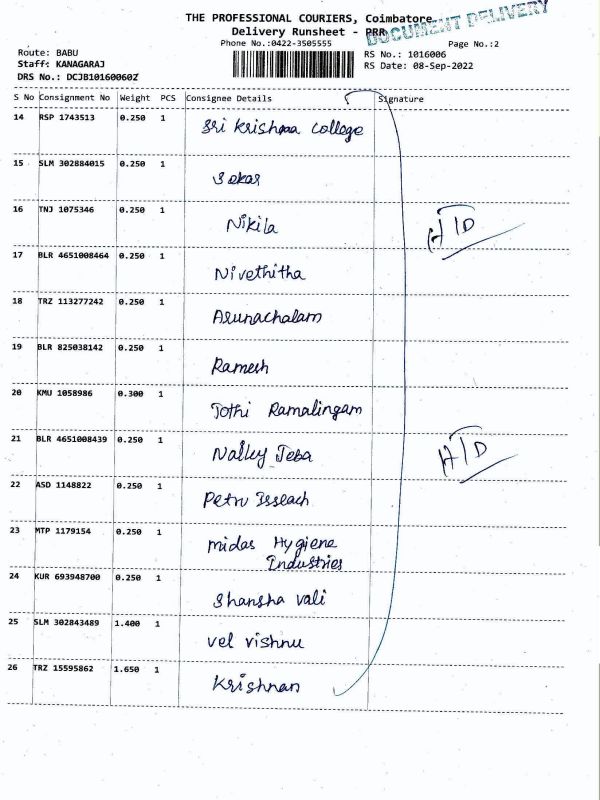 THE PROFESSIONAL COURIERS, Coimbatore
Delivery Runsheet - PRR
DOCUMENT DELIVERY
Phone No.:0422-3505555
Page No.:2
Route: BABU
RS No.: 1016006
Staff: KANAGARAJ
RS Date: 08-Sep-2022
DRS No.: DCJB10160060Z
S No Consignment No Weight PCS Consignee Details Signature
14 RSP 1743513 0.250 1 Sri Krishna College
15 SLM 302884015 0.250 1 Sekar
16 TNJ 1075346 0.250 1 Nikila H/D
17 BLR 4651008464 0.250 1 Nivethitha
18 TRZ 113277242 0.250 1 Arunachalam
19 BLR 825038142 0.250 1 Ramesh
20 KMU 1058986 0.300 1 Jothi Ramalingam
21 BLR 4651008439 0.250 1 Nalley Jeba H/D
22 ASD 1148822 0.250 1 Petru
23 MTP 1179154 0.250 1 midas Hygiene
Industries
24 KUR 693948700 0.250 1 Shansha vali
25 SLM 302843489 1.400 1 vel vishnu
26 TRZ 15595862 1.650 1 Krishnan